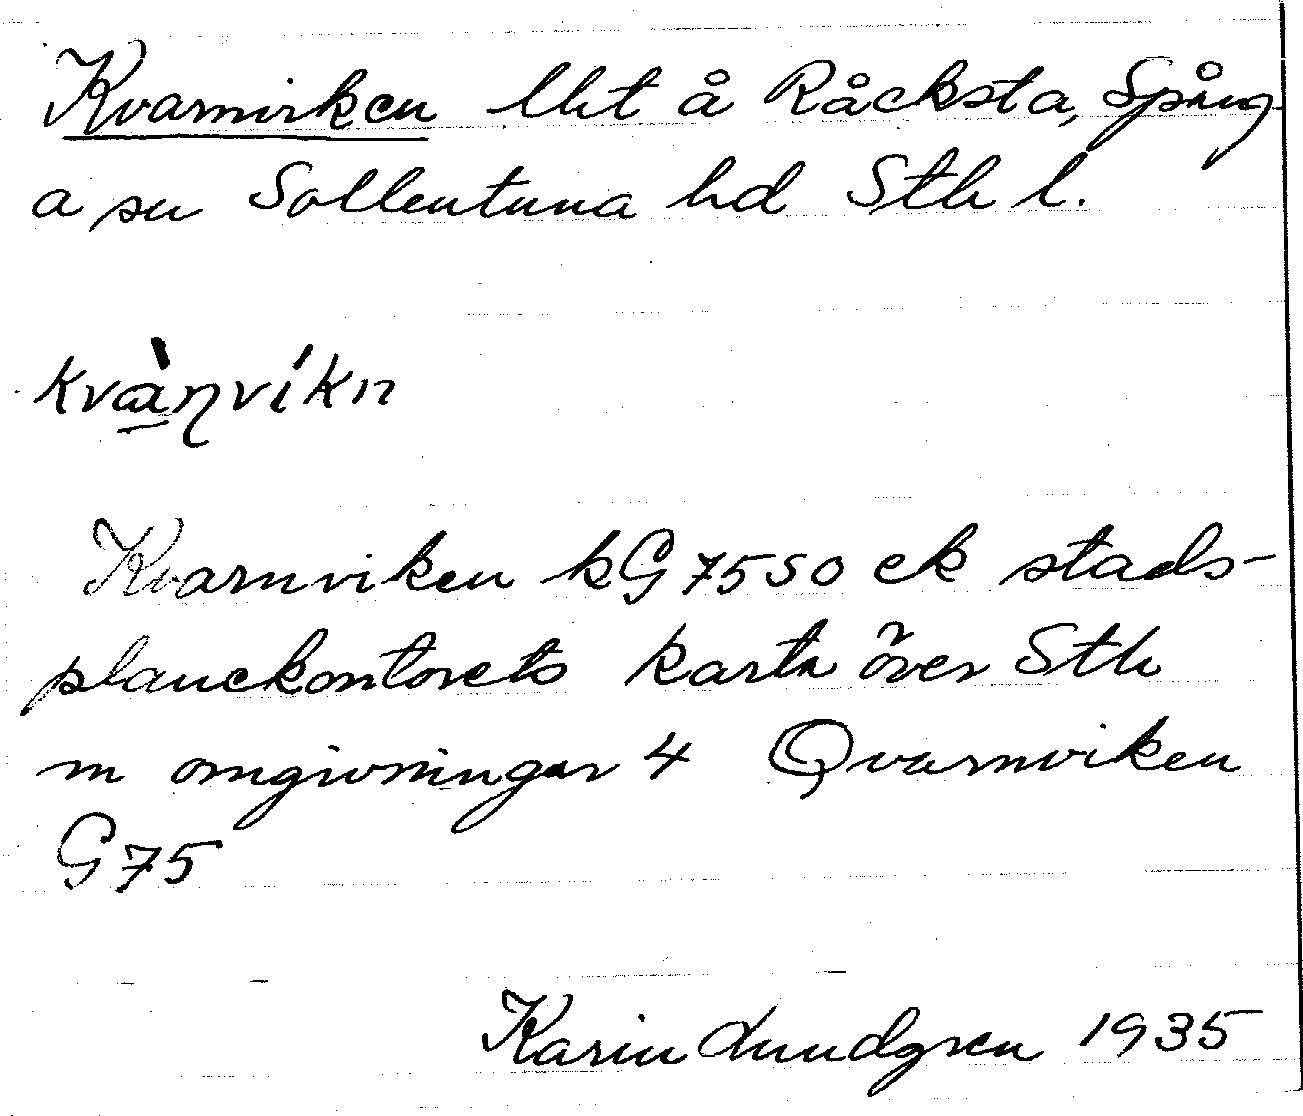 Kvarnviken lht å Råcksta, Spång-
a sn Sollentuna hd Sth l.
kvàɳvíkn
Kvarnviken kG 75 SO ek stads-
planekontorets karta över Sth
m omgivningar 4 Qvarnviken
G 75
Karin Lundgren 1935